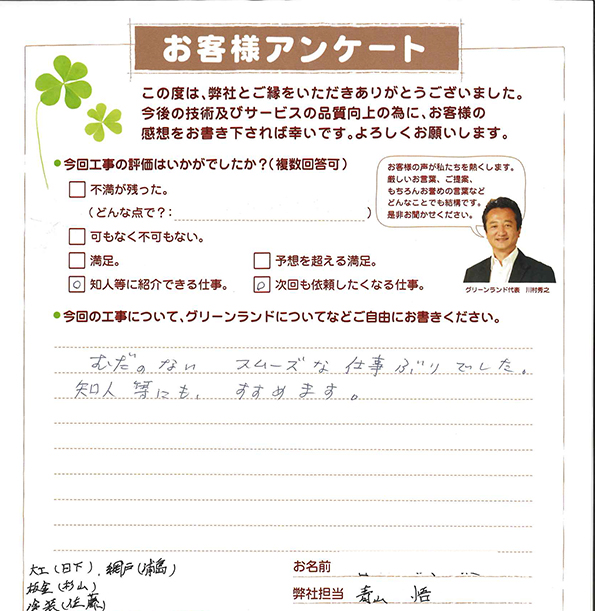 お客様アンケート
この度は、弊社とご縁をいただきありがとうございました。
今後の技術及びサービスの品質向上の為に、お客様の
感想をお書き下されば幸いです。よろしくお願いします。
●今回工事の評価はいかがでしたか？（複数回答可）
不満が残った。
（どんな点で？：　　　）
可もなく不可もない。
満足。　予想を超える満足。
○ 知人等に紹介できる仕事。　○ 次回も依頼したくなる仕事。
お客様の声が私たちを熱くします。
厳しいお言葉、ご提案、
もちろんお誉めの言葉など
どんなことでも結構です。
是非お聞かせください。
グリーンランド代表　川村秀之
●今回の工事について、グリーンランドについてなどご自由にお書きください。
むだのない　スムーズな仕事ぶりでした。
知人等にも、すすめます。
大工（日下）．網戸（浦島）
板金（杉山）
塗装（佐藤）
お名前
弊社担当　青山　悟